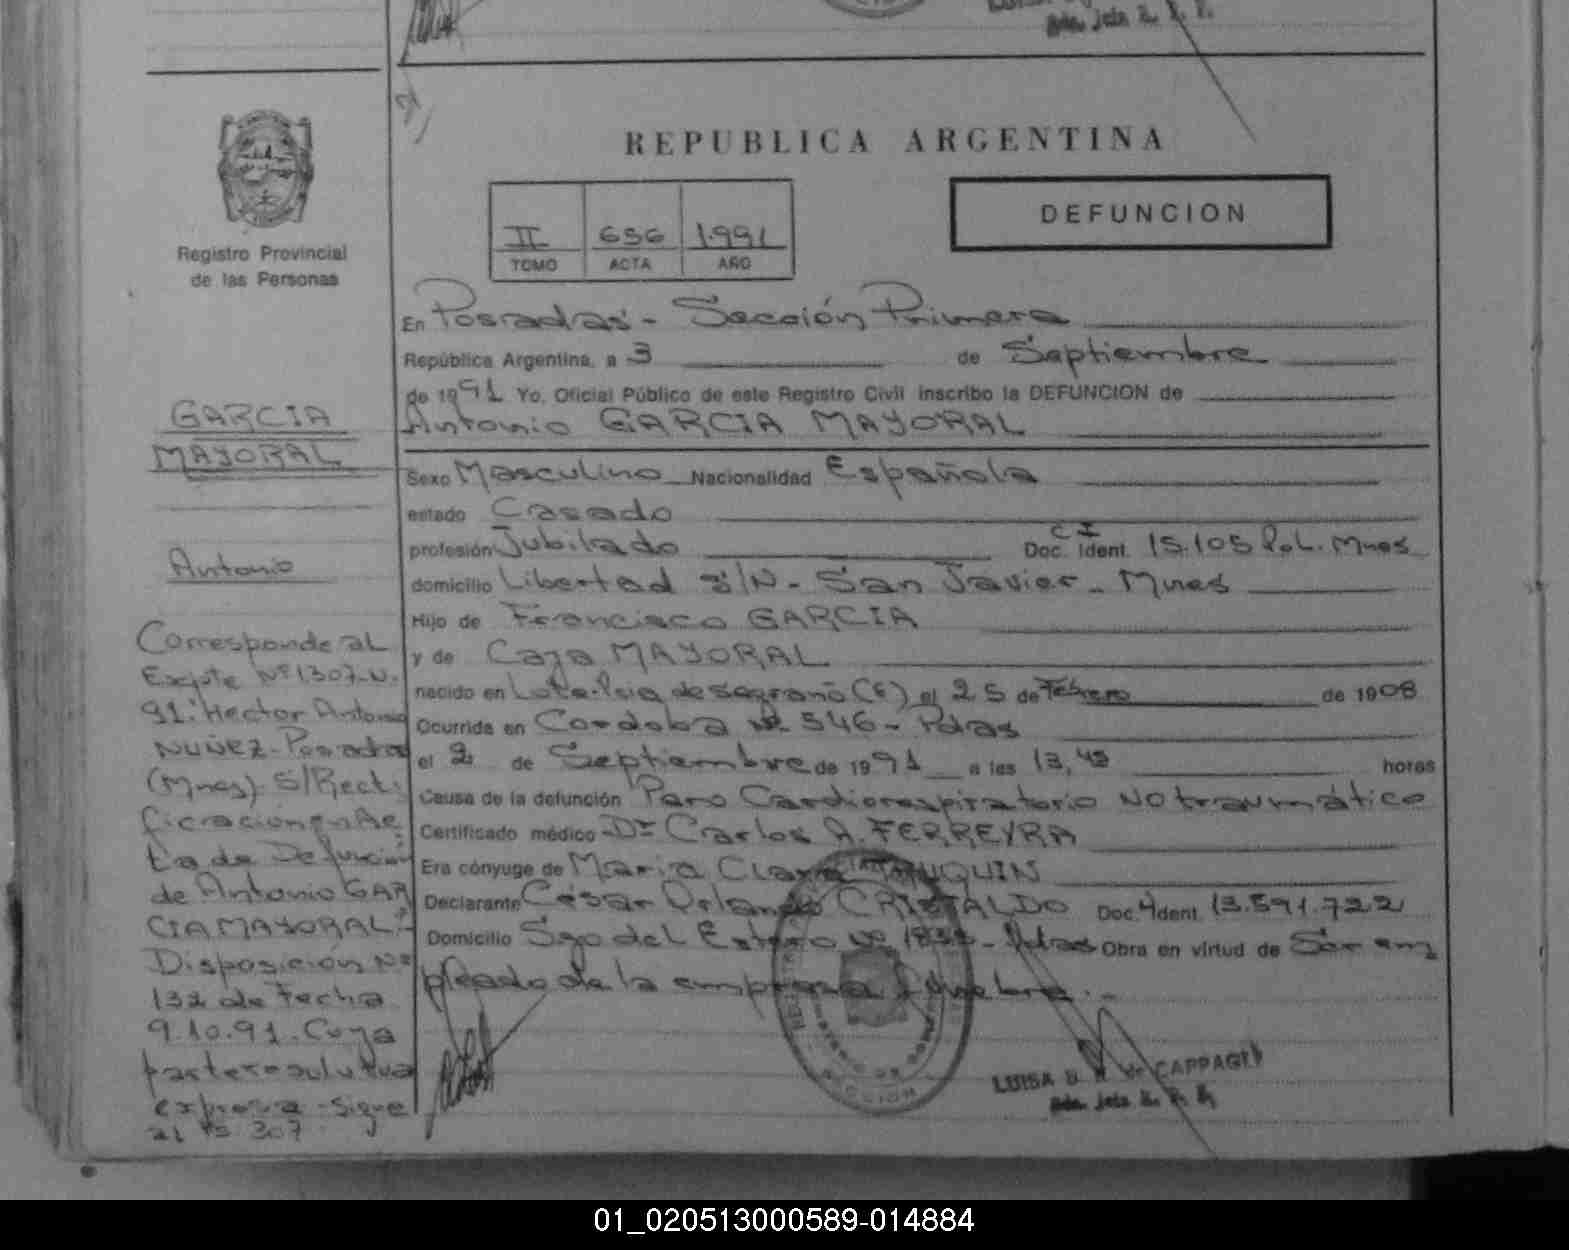 REPUBLICA ARGENTINA
DEFUNCION
II 656 1.991
TOMO ACTA AÑO
Registro Provincial
de las Personas
GARCIA
MAYORAL
Antonio
Corresponde al
Expte Nº 1307-N-
91: Hector Antonio
NUÑEZ-Posadas
(Mnes). S/Recti
ficacion en Ac
ta de Defunción
de Antonio GAR
CIA MAYORAL:
Disposición Nº
132 de Fecha
9.10.91. Cuya
parte resolutiva
expresa: Sigue
al Fs 307
En Posadas - Sección Primera
República Argentina, a 3 de Septiembre
de 1991 Yo, Oficial Público de este Registro Civil inscribo la DEFUNCION de
Antonio GARCIA MAYORAL
Sexo Masculino Nacionalidad Española
estado Casado
profesión Jubilado Doc. Ident. C I 15.105 Pol. Mnes
domicilio Libertad S/N - San Javier - Mnes
Hijo de Francisco GARCIA
y de Caya MAYORAL
nacido en de (E) el 25 de Febrero de 1908
Ocurrida en Cordoba Nº 546 - Pdas
el 2 de Septiembre de 1991 a las 13,45 horas
Causa de la defunción Paro Cardiorespiratorio NO traumático
Certificado médico Dr Carlos A. FERREYRA
Era cónyuge de Maria Clara
Declarante César Orlando CRISTALDO Doc. Ident. 13.591.722
Domicilio Sgo del Estero Nº - Pdas Obra en virtud de Ser em
pleado de la empresa fúnebre.-
LUISA de CAPPAGLI
01_020513000589-014884